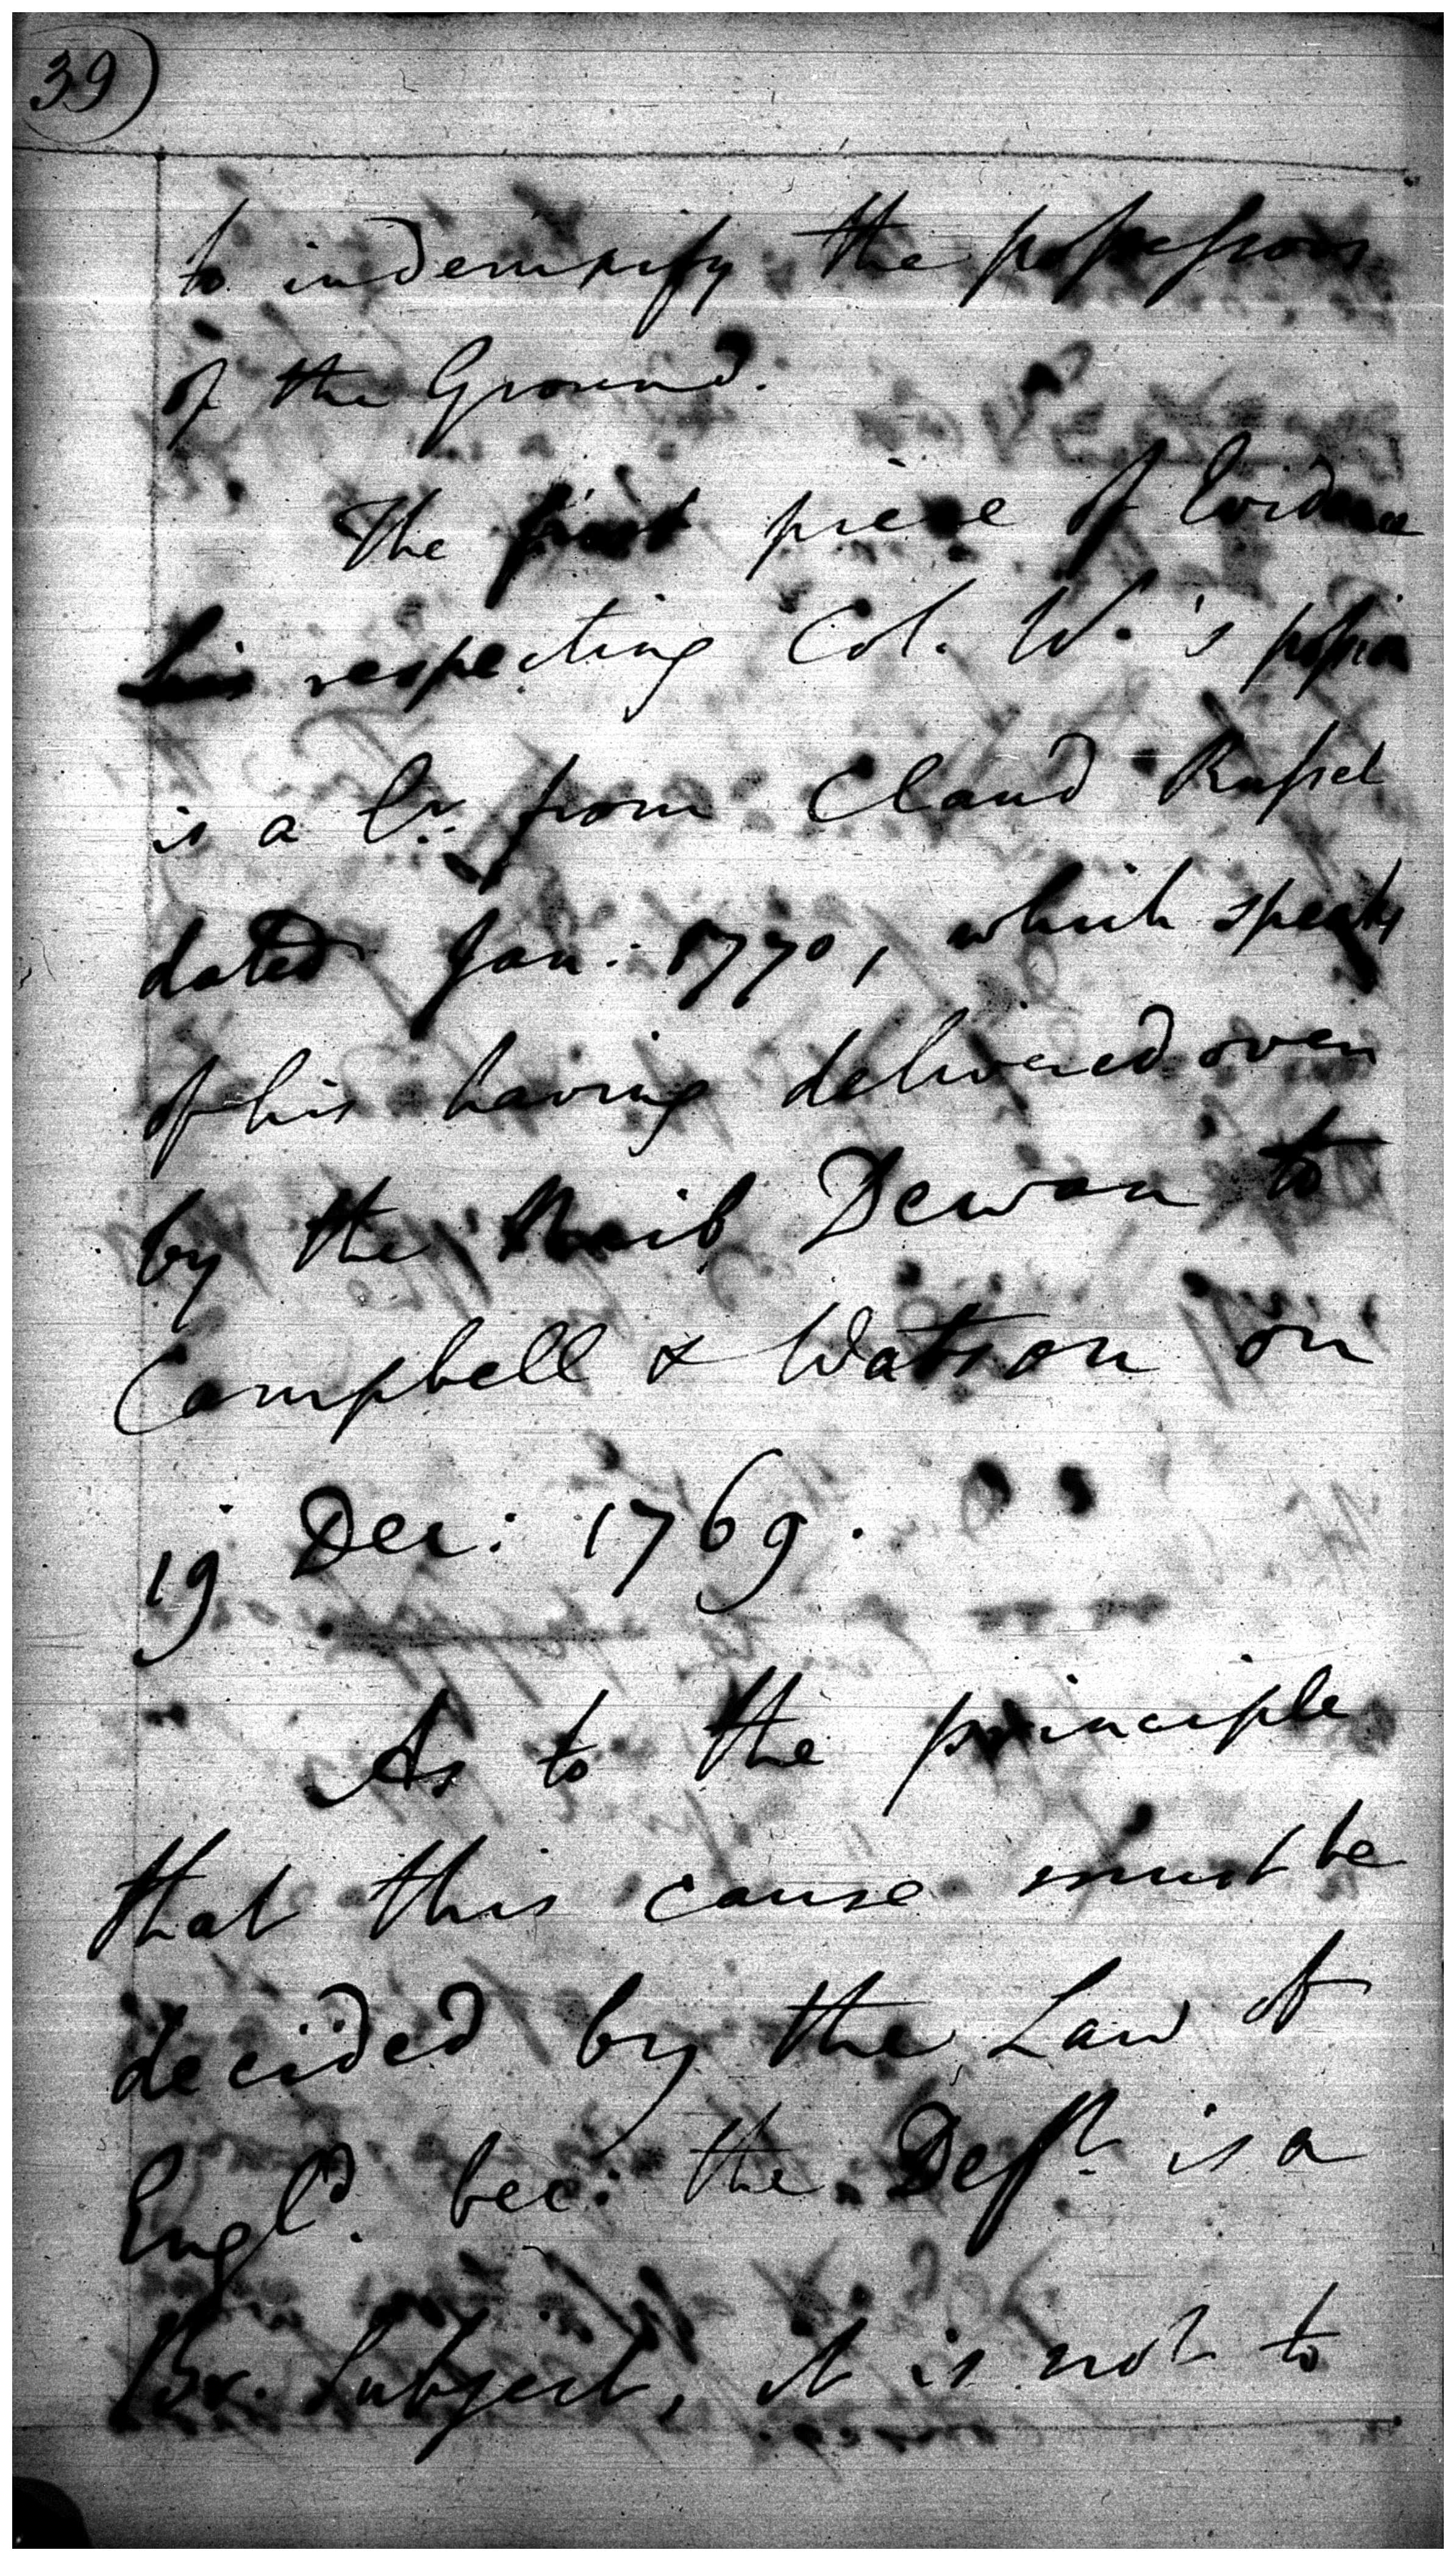 39
to indemnify the possessors
of the Ground.
The first piece of Evidence
respecting Col. W.'s possion
is a Lr. from Claud Russel
dated Jan. 1770, which speaks
of his having delivered over
by the Naib Dewan to
Campbell & Watson on
19 Dec: 1769.
As to the principle
that this cause must be
decided by the Law of
Engld. bec: the Deft. is a
Br. Subject, it is not to